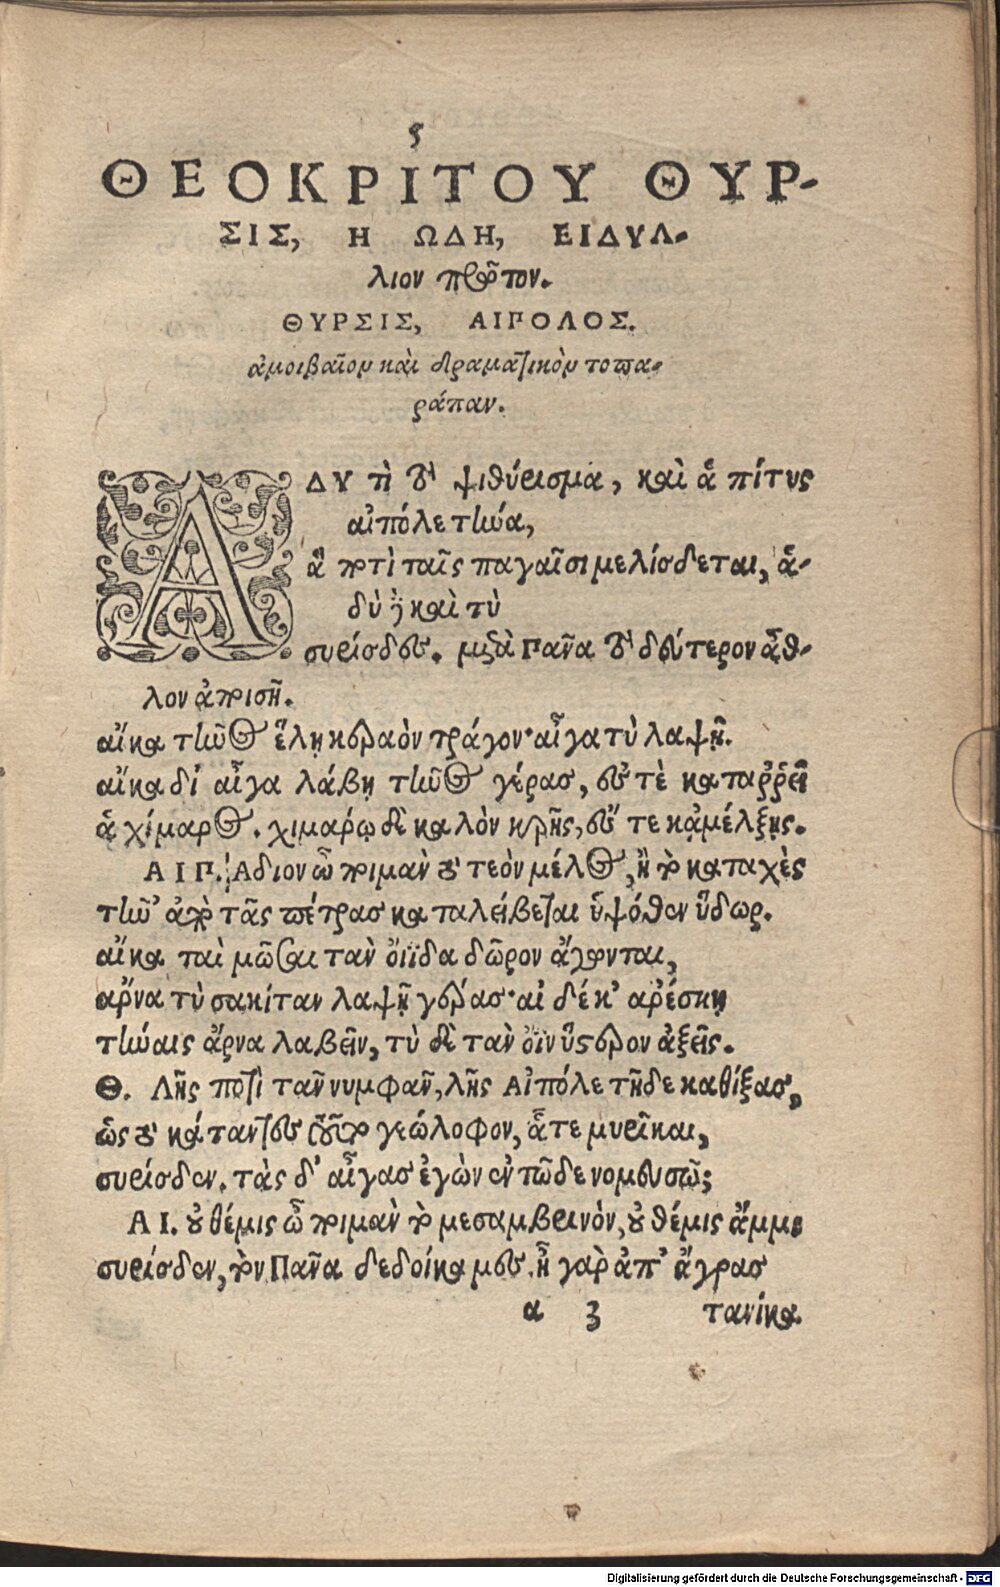 ς
ΘΕΟΚΡΙΤΟΥ ΘΥΡ-
ΣΙΣ, Η ΩΔΗ, ΕΙΔΥΛ-
λιον πρῶτον.
ΘΥΡΣΙΣ, ΑΙΠΟΛΟΣ.
ἀμοιβαῖον καὶ δραματικὸν τοπα-
ράπαν.
ΑΔΥ τὶ τὸ ψιθύρισμα, καὶ ἁ πίτυς
αἰπόλε τήνα,
ἃ ποτὶ ταῖς παγαῖσι μελίσδεται, ἁ-
δὺ δὲ καὶ τὺ
συρίσδες. μετὰ Πᾶνα τὸ δεύτερον ἆθ-
λον ἀποισῇ.
αἴκα τῆνος ἕλῃ κεραὸν τράγον· αἶγα τὺ λαψῇ.
αἴκα δέ αἶγα λάβῃ τῆνος γέρας, ἐς τὲ καταῤῥεῖ
ἁ χίμαρος. χιμάρῳ δὲ καλὸν κρῆς, ἔς τε κἀμέλξῃς.
ΑΙΠ. Αδιον ὦ ποιμὰν τὸ τεὸν μέλος, ἢ τὸ καταχὲς
τῆν' ἀπὸ τᾶς πέτρας καταλείβεται ὑψόθεν ὕδωρ.
αἴκα ταὶ μῶσαι τὰν ὄϊϊδα δῶρον ἄγωνται,
ἄρνα τὺ σακίταν λαψῇ γέρας· αἰ δέ κ' ἀρέσκῃ
τήναις ἄρνα λαβεῖν, τὺ δὲ τὰν ὄϊν ὕστερον ἀξεῖς.
Θ. Λῇς ποτὶ τᾶν νυμφᾶν, λῇς Αἰπόλε τῇδε καθίξας,
ὡς τὸ κάταντες τοῦτο γεώλοφον, ἅτε μυρῖκαι,
συρίσδεν. τὰς δ' αἶγας ἐγὼν ἐν τῷδε νομευσῶ;
ΑΙ. οὐ θέμις ὦ ποιμὰν τὸ μεσαμβρινὸν, οὐ θέμις ἄμμι
συρίσδεν, τὸν Πᾶνα δεδοίκαμες. ἦ γὰρ ἀπ' ἄγρας
α 3 τανίκα